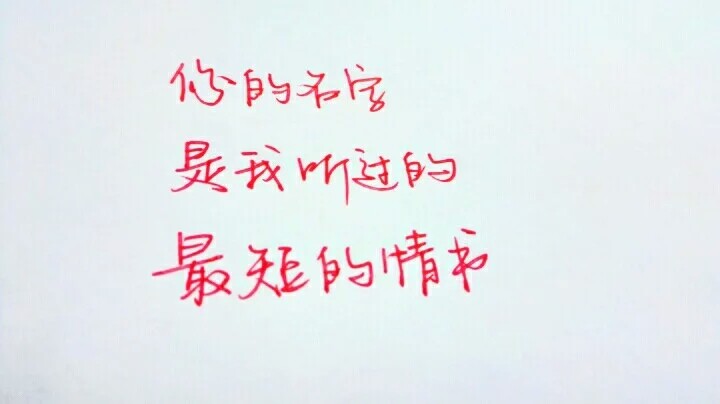 你的名字
是我听过的
最短的情书